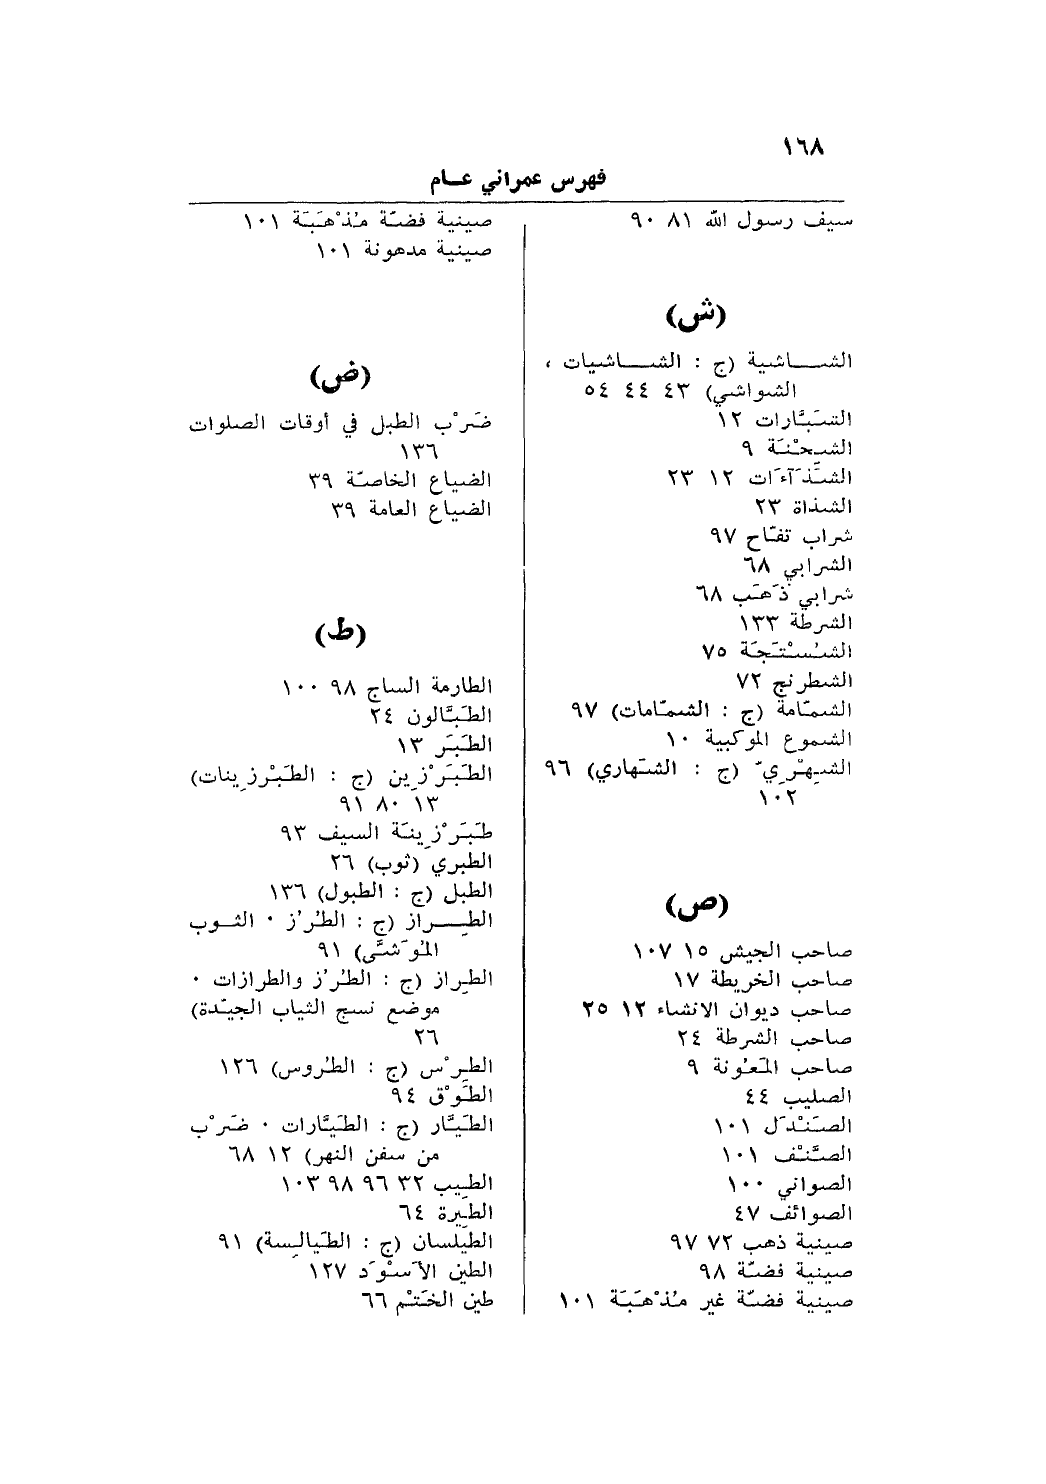 ١٦٨
فهرس عمراني عـــام
سيف رسول الله ٨١ ٩٠
(ش)
الشـــاشية (ج : الشـــاشيات ،
الشواشي) ٤٣ ٤٤ ٥٤
الشَبَّارات ١٢
الشِحْنَة ٩
الشَّذَآءَات ١٢ ٢٣
الشذاة ٢٣
شراب تفّاح ٩٧
الشرابي ٦٨
شرابي ذَهَب ٦٨
الشرطة ١٣٣
الشُسْتَجَة ٧٥
الشطرنج ٧٢
الشمّامة (ج : الشمّامات) ٩٧
الشموع الموكبية ١٠
الشِهْرِيّ (ج : الشَهاري) ٩٦
١٠٢
(ص)
صاحب الجيش ١٥ ١٠٧
صاحب الخريطة ١٧
صاحب ديوان الانشاء ١٢ ٢٥
صاحب الشرطة ٢٤
صاحب المَعُونة ٩
الصليب ٤٤
الصَنْدَل ١٠١
الصَّنْف ١٠١
الصواني ١٠٠
الصوائف ٤٧
صينية ذهب ٧٢ ٩٧
صينية فضّة ٩٨
صينية فضّة غير مُذْهَبَة ١٠١
صينية فضّة مُذْهَبَة ١٠١
صينية مدهونة ١٠١
(ض)
ضَرْب الطبل في أوقات الصلوات
١٣٦
الضياع الخاصّة ٣٩
الضياع العامة ٣٩
(ط)
الطارمة الساج ٩٨ ١٠٠
الطَبَّالون ٢٤
الطَبَر ١٣
الطَبَرْزِين (ج : الطَبْرزِينات)
١٣ ٨٠ ٩١
طَبَرْزِينَة السيف ٩٣
الطبري (ثوب) ٢٦
الطبل (ج : الطبول) ١٣٦
الطِـــراز (ج : الطُرُز ٠ الثـوب
المُوَشَّى) ٩١
الطِراز (ج : الطُرُز والطرازات ٠
موضع نسج الثياب الجيّدة)
٢٦
الطِرْس (ج : الطُروس) ١٢٦
الطَوْق ٩٤
الطَيَّار (ج : الطَيَّارات ٠ ضَرْب
من سفن النهر) ١٢ ٦٨
الطِيب ٣٢ ٩٦ ٩٨ ١٠٣
الطِيرة ٦٤
الطَيلسان (ج : الطَيالِسة) ٩١
الطين الأَسْوَد ١٢٧
طين الخَتْم ٦٦